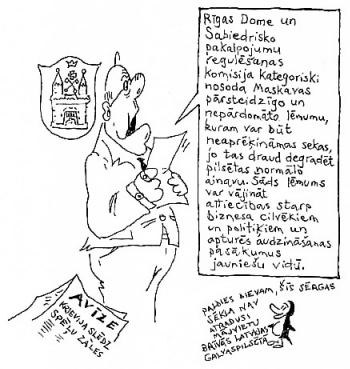 Rīgas Dome un
Sabiedrisko
pakalpojumu
regulēšanas
komisija kategoriski
nosoda Maskavas
pārsteidzīgo un
nepārdomāto lēmumu,
kuram var būt
neaprēķināmas sekas,
jo tas draud degradēt
pilsētas normālo
ainavu. Šāds lēmums
var vājināt
attiecības starp
biznesa cilvēkiem
un politiķiem un
apturēs audzināšanas
pasākumus
jauniešu vidū.
AVĪZE
KRIEVIJA SLĒDZ
SPĒĻU ZĀLES
PALDIES DIEVAM, ŠĪS SĒRGAS
SĒKLA NAV
ATRADUSI
MĀJVIETU
BRĪVĒS LATVIJAS
GALVASPILSĒTĀ